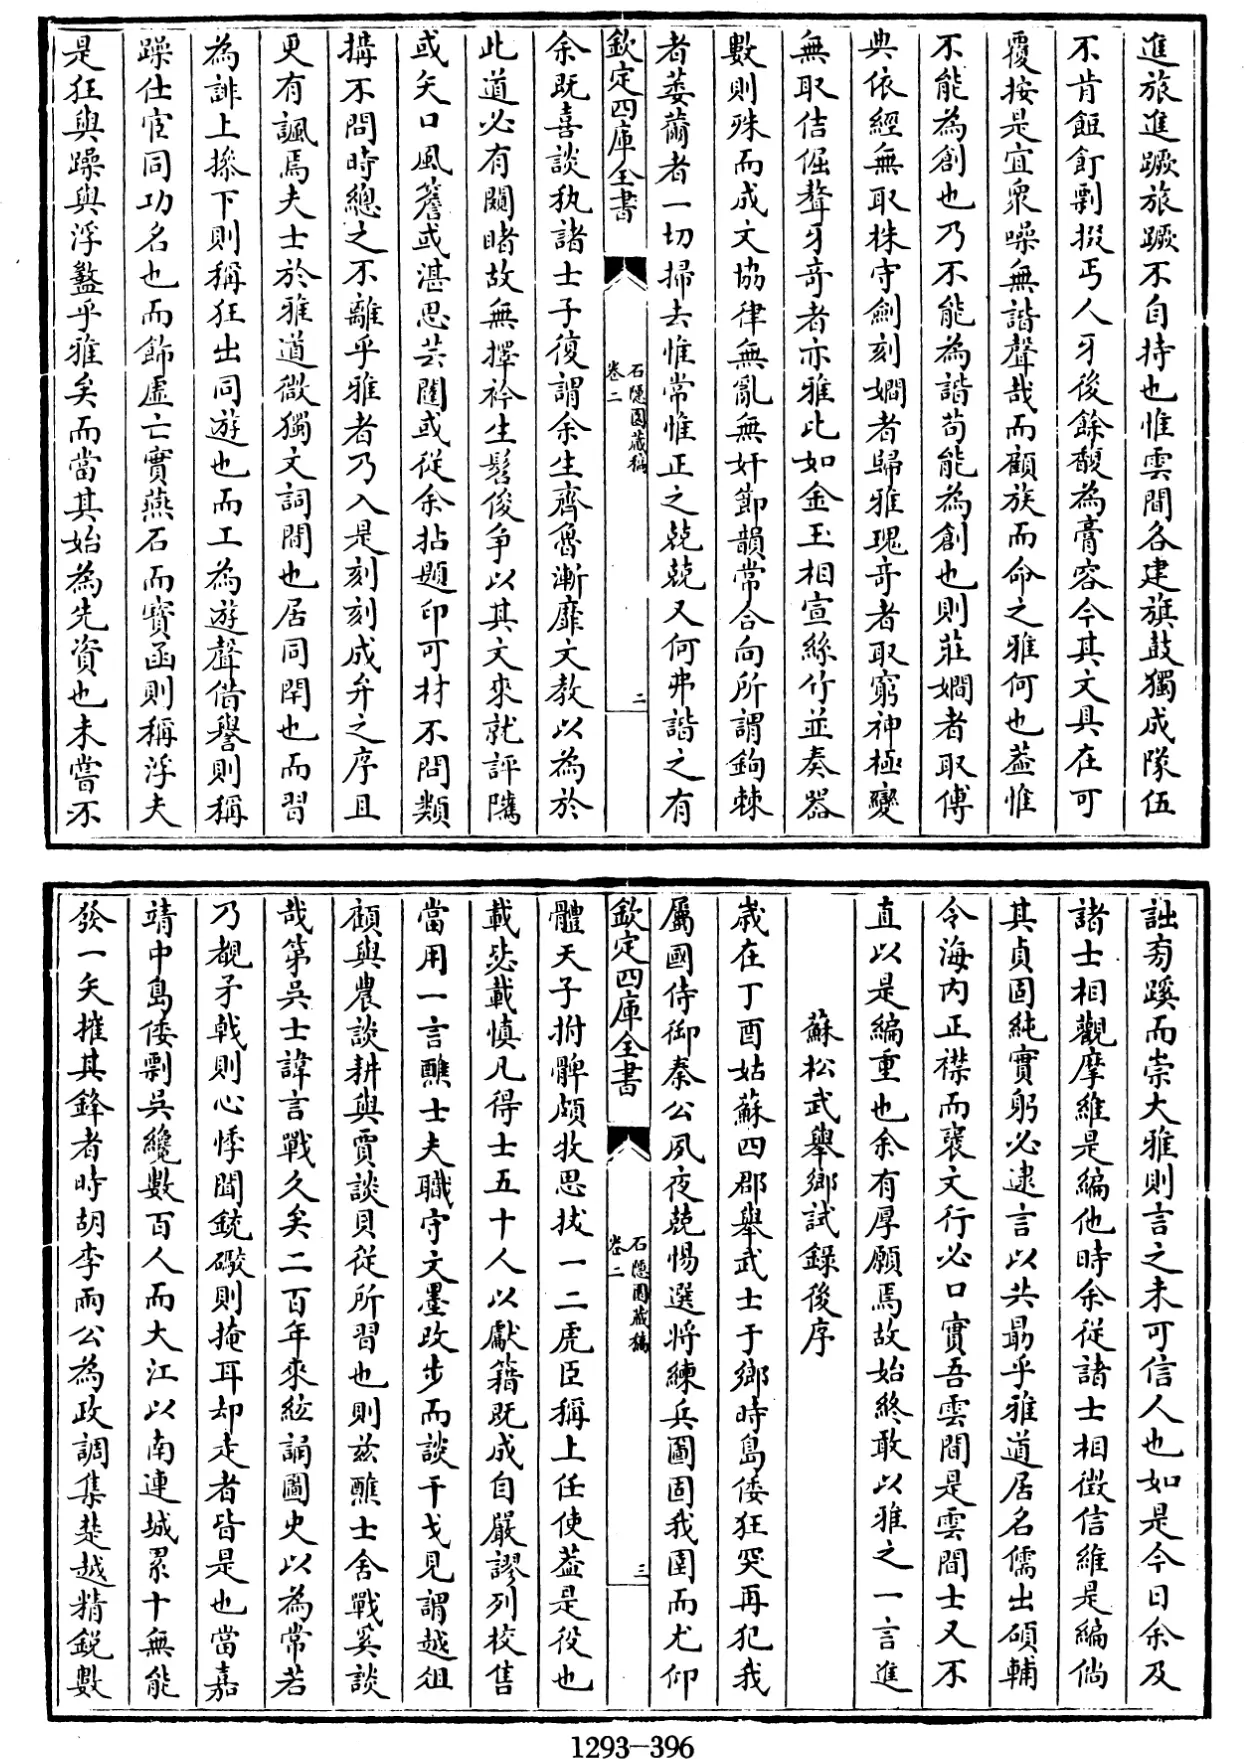 進旅進蹶旅蹶不自持也惟雲間各建旗鼓獨成隊伍
不肯飣餖剽掇丐人牙後餘馥為膏容今其文具在可
覆按是宜衆噪無諧聲哉而顧族而命之雅何也葢惟
不能為創也乃不能為諧苟能為創也則莊嫺者取傅
典依經無取株守劍刻嫺者歸雅瑰奇者取窮神極變
無取佶倔聱牙奇者亦雅此如金玉相宣絲竹並奏器
數則殊而成文協律無亂無奸節韻常合向所謂鉤棘
者萎薾者一切掃去惟常惟正之兢兢又何弗諧之有
欽定四庫全書
石隱園藏稿
卷二
二
余既喜談執諸士子復謂余生齊魯漸靡文教以為於
此道必有闚睹故無擇衿生髦俊争以其文來就評隲
或矢口風簷或湛思芸閣或從余拈題印可材不問類
搆不問時總之不離乎雅者乃入是刻刻成弁之序且
更有諷焉夫士於雅道微獨文詞閒也居同閈也而習
為誹上摻下則稱狂出同遊也而工為遊聲借譽則稱
躁仕宦同功名也而飾虛亡實燕石而寶函則稱浮夫
是狂與躁與浮盭乎雅矣而當其始為先資也未嘗不
詘旁蹊而崇大雅則言之未可信人也如是今日余及
諸士相觀摩維是編他時余從諸士相徴信維是編倘
其貞固純實躬必逮言以共勗乎雅道居名儒出碩輔
令海内正襟而襃文行必口實吾雲間是雲間士又不
直以是編重也余有厚願焉故始終敢以雅之一言進
蘇松武舉鄉試錄後序
歲在丁酉姑蘇四郡舉武士于鄉時島倭狂突再犯我
屬國侍御秦公夙夜兢惕選将練兵圖固我圉而尤仰
欽定四庫全書
石隱園藏稿
卷二
三
體天子拊髀頗牧思拔一二虎臣稱上任使葢是役也
載毖載慎凡得士五十人以獻籍既成自嚴謬列校售
當用一言醮士夫職守文墨改步而談干戈見謂越俎
顧與農談耕與賈談貝從所習也則兹醮士舍戰奚談
哉第吳士諱言戰久矣二百年來絃誦圖史以為常若
乃覩矛戟則心悸聞銃礮則掩耳却走者皆是也當嘉
靖中島倭剽吳纔數百人而大江以南連城累十無能
發一矢摧其鋒者時胡李兩公為政調集楚越精鋭數
1293-396